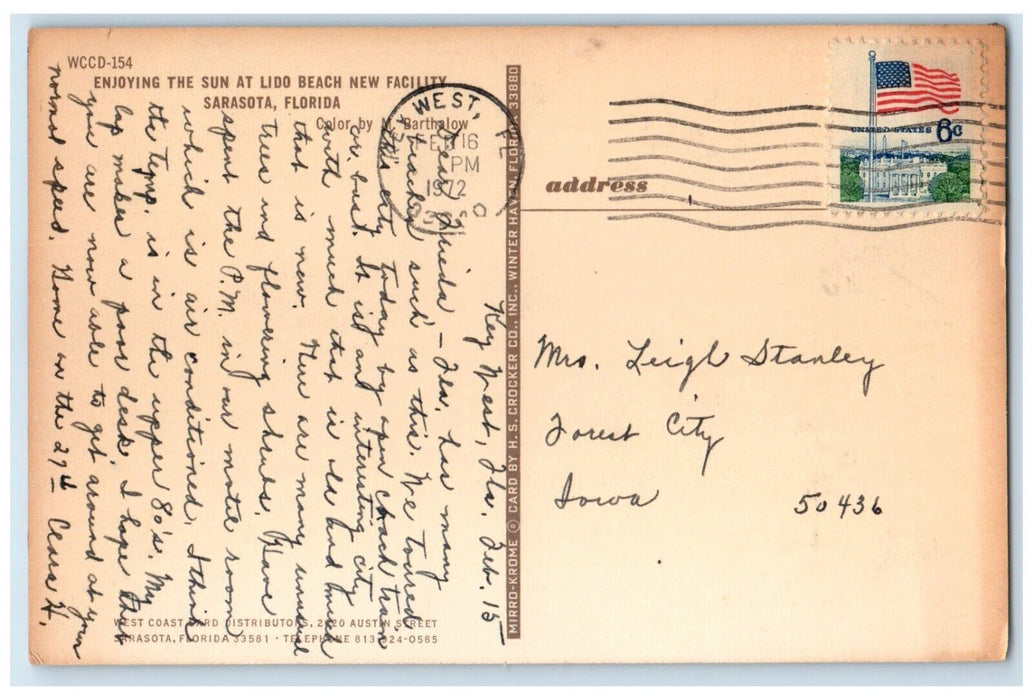 WCCD-154
ENJOYING THE SUN AT LIDO BEACH NEW FACILITY
SARASOTA, FLORIDA
Color by M. Barthalow
WEST, FL
FEB 16
PM
1972
Key West, Fla. Feb. 15
Dear Friede, – Fla. has many
beaches such as this. We toured
this city today by open coach train
or bus. It is an interesting city
with much that is old and much
that is new. There are many unusual
trees and flowering shrubs. Have
spent the P.M. in our motel room
which is air conditioned. I think
the temp. is in the upper 80's. My
lap makes a poor desk. I hope that
you are now able to get around at your
normal speed. Home on the 29th Clara H.
WEST COAST CARD DISTRIBUTORS, 2120 AUSTIN STREET
SARASOTA, FLORIDA 33581 · TELEPHONE 813-924-0585
MIRRO-KROME ® CARD BY H. S. CROCKER CO., INC., WINTER HAVEN, FLORIDA 33880
UNITED STATES 6c
address
Mrs. Leigh Stanley
Forest City
Iowa 50436